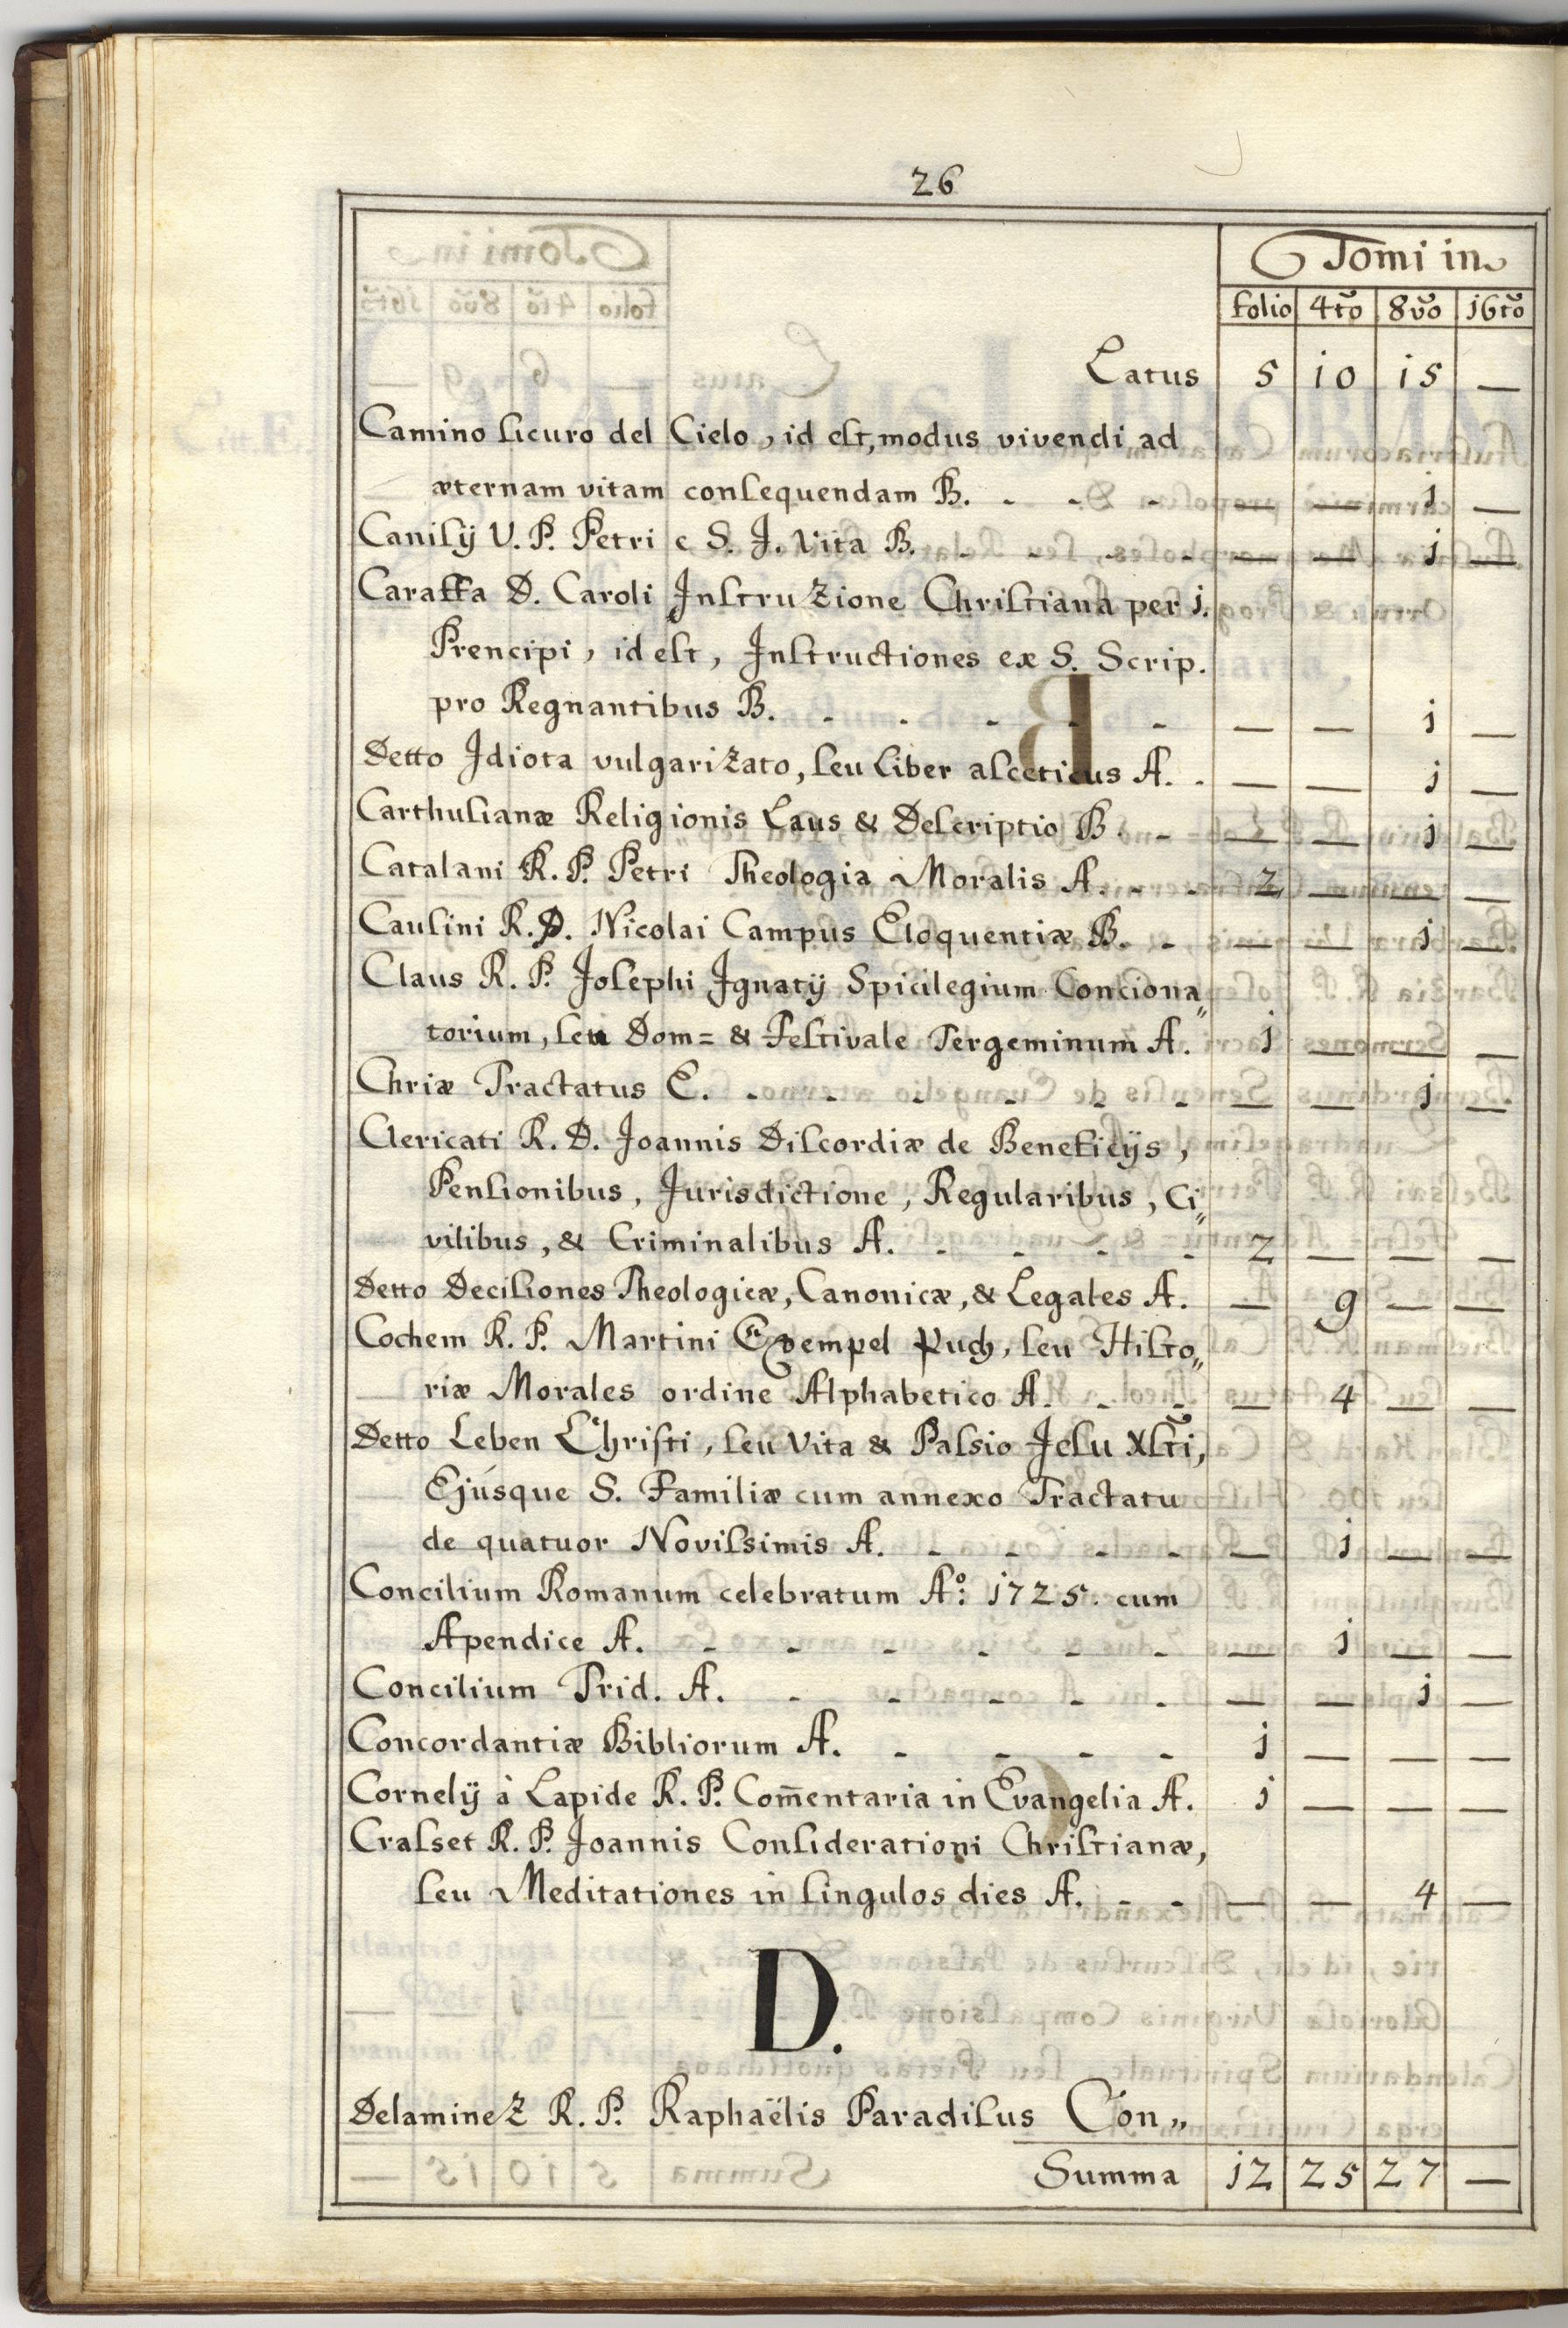 26
Tomi in
folio 4to 8vo 16to
Latus 5 10 15 —
Camino sicuro del Cielo, id est, modus vivendi ad
æternam vitam consequendam B. - - - — — 1 —
Canisij V. P. Petri e S. J. Vita B. - - - - — — 1 —
Caraffa D. Caroli Instruzione Christiana per i.
Prencipi, id est, Instructiones ex S. Scrip.
pro Regnantibus B. - - - - - — — 1 —
Detto Idiota vulgarizato, seu liber asceticus A. - — — 1 —
Carthusianæ Religionis Laus & Descriptio B. - — — 1 —
Catalani R. P. Petri Theologia Moralis A. - - 2 — — —
Causini R. D. Nicolai Campus Eloquentiæ B. - — — 1 —
Claus R. P. Josephi Ignatij Spicilegium Conciona„
torium, seu Dom= & Festivale Tergeminum A. 1 — — —
Chriæ Tractatus C. - - - - - - — — 1 —
Clericati R. D. Joannis Discordiæ de Beneficijs,
Pensionibus, Jurisdictione, Regularibus, Ci„
vilibus, & Criminalibus A. - - - - 2 — — —
Detto Decisiones Theologicæ, Canonicæ, & Legales A. — 9 — —
Cochem R. P. Martini Exempel Puch, seu Histo„
riæ Morales ordine Alphabetico A. - - — 4 — —
Detto Leben Christi, seu Vita & Passio Jesu Xsti,
Ejúsque S. Familiæ cum annexo Tractatu
de quatuor Novissimis A. - - - - — 1 — —
Concilium Romanum celebratum Aº: 1725. cum
Apendice A. - - - - - - — 1 — —
Concilium Trid. A. - - - - - — — 1 —
Concordantiæ Bibliorum A. - - - - 1 — — —
Cornelij à Lapide R. P. Com̄entaria in Evangelia A. 1 — — —
Crasset R. P. Joannis Considerationi Christianæ,
seu Meditationes in singulos dies A. - - — — 4 —
D.
Delaminez R. P. Raphaëlis Paradisus Con„
Summa 12 25 27 —